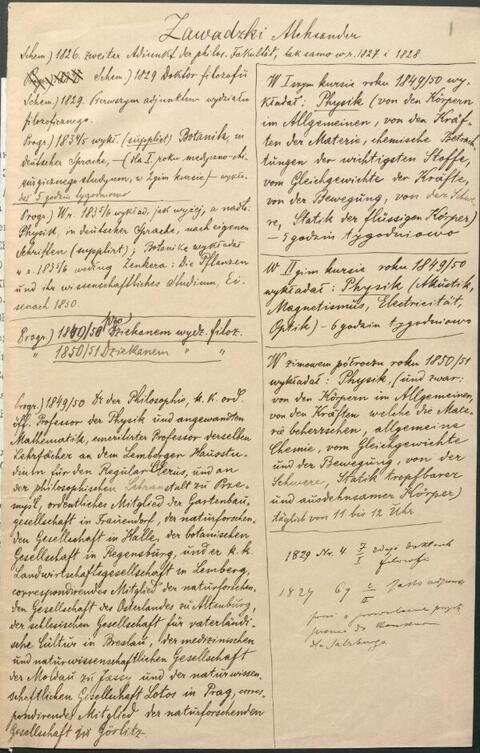 Zawadzki Aleksander
1
Schem.) 1826. zweiter Adjunkt der philos. Fakultät, tak samo w r. 1827 i 1828.
Schem.) 1829 Doktor filozofii
Schem.) 1829. Pierwszym adjunktem wydziału
filozoficznego.
Progr.) 1834/5 wykł. (supplirt) Botanik, in
deutscher Sprache, — (dla I. roku medyczno-chi-
rurgicznego studyum, w zgim kursie) — wykła-
dał 5 godzin tygodniowo
Progr.) W r. 1835/6 wykład, jak wyżej, a nadto
Physik, in deutscher Sprache, nach eigenen
Schriften (supplirt); Botanikę wykładał
w r. 1835/6 według Zenkera: Die Pflanzen
und ihr wissenschaftliches Studium, Ei-
senach 1830.
Progr.) 1849/50 Prodziekanem wydz. filoz.
" 1850/51 Dziekanem " "
Progr.) 1849/50 Dr der Philosophie, k. k. ord.
öff. Professor der Physik und angewandten
Mathematik, emeritirter Professor derselben
Lehrfächer an dem Lemberger Hausstu-
dium für den Regular Clerus, und an
der philosophischen Lehranstalt zu Prze-
myśl, ordentliches Mitglied der Gartenbau-
gesellschaft in Frauendorf, der naturforschen-
den Gesellschaft zu Halle, der botanischen
Gesellschaft in Regensburg, und der k. k.
Landwirtschaftsgesellschaft in Lemberg,
correspondirendes Mitglied der naturforschen-
den Gesellschaft des Osterlandes zu Altenburg,
der schlesischen Gesellschaft für vaterländi-
sche Cultur in Breslau, der medizinischen
und naturwissenschaftlichen Gesellschaft
der Moldau zu Jassy und der naturwissen-
schaftlichen Gesellschaft Lotos in Prag, corres-
pondirendes Mitglied der naturforschenden
Gesellschaft zu Görlitz.
W Iszym kursie roku 1849/50 wy-
kładał: Physik (von den Körpern
im Allgemeinen, von den Kräf-
ten der Materie, chemische Betrach-
tungen der wichtigsten Stoffe,
vom Gleichgewichte der Kräfte,
von der Bewegung, von der Schwe-
re, Statik der flüssigen Körper)
— 5 godzin tygodniowo
W IIgim kursie roku 1849/50
wykładał: Physik (Akustik,
Magnetismus, Electricität,
Optik) — 6 godzin tygodniowo
W zimowem półroczu roku 1850/51
wykładał: Physik, (und zwar:
von den Körpern im Allgemeinen,
von den Kräften welche die Mate-
rie beherrschen, allgemeine
Chemie, vom Gleichgewichte
und der Bewegung, von der
Schwere, Statik tropfbarer
und ausdehnsamer Körper)
täglich von 11 bis 12 Uhr
1829 Nr. 4
filozofii
1827 67
do Salzburga